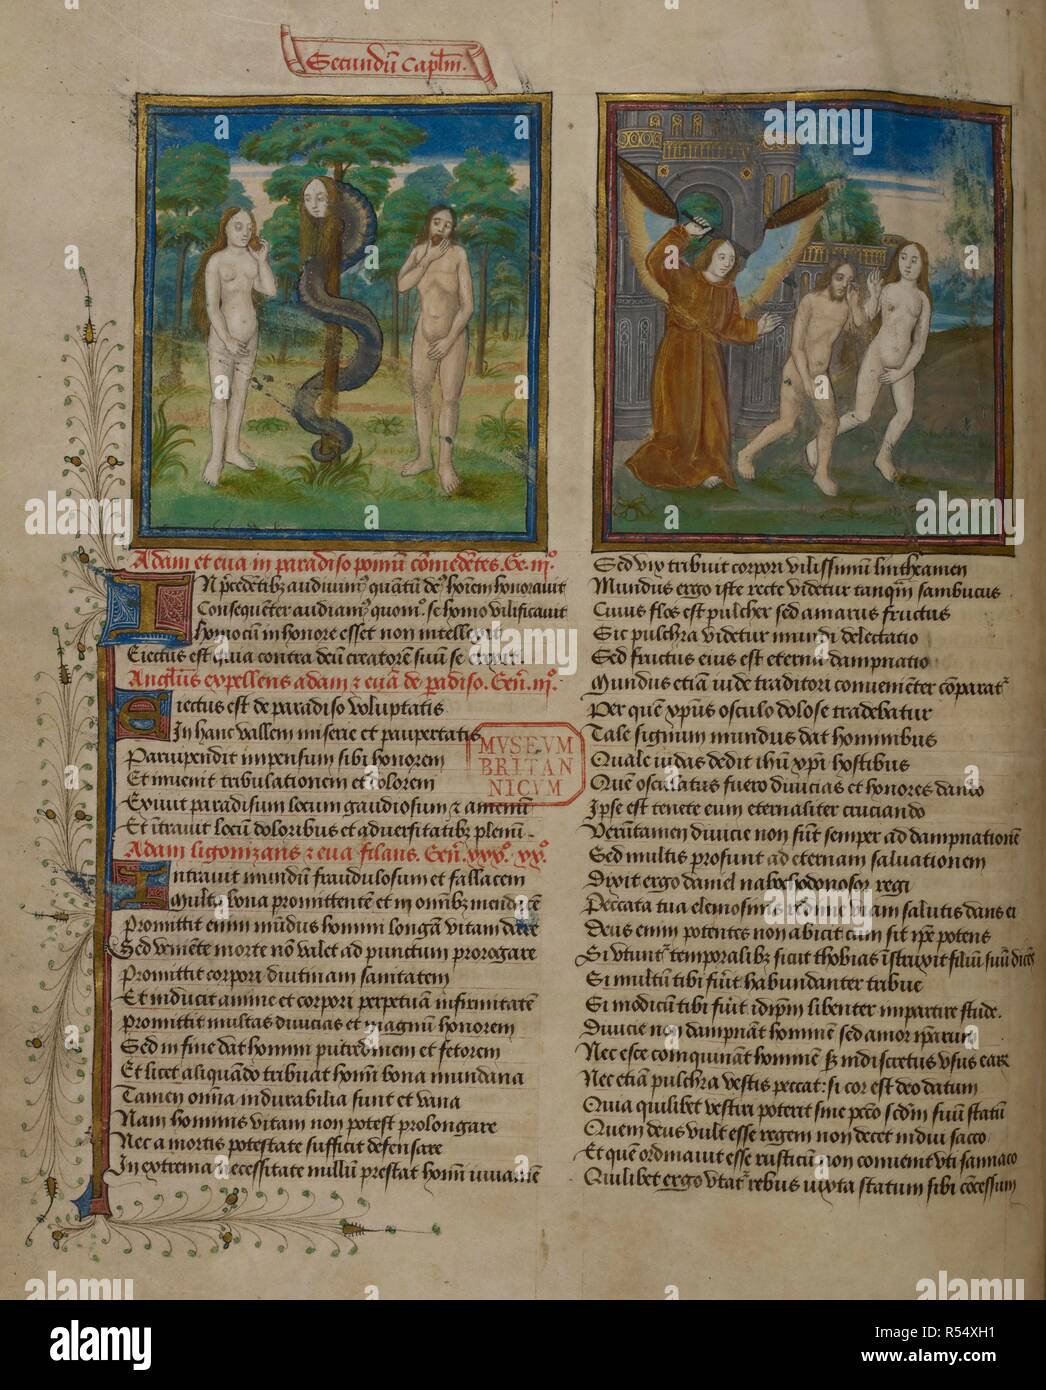 Secundū Capłm.
Adam et eua in paradiso pomū comedētes. Ge. iijº.
IN p̄cedētibꝫ audiuimꝰ quātū deꝰ hoīem honorauit
Consequēter audiamꝰ quomº se homo vilificauit
Homo cū in honore esset non intellexit
Eiectus est quia contra deū creatorē suū se erexit.
Anglūs expellens adam ⁊ euā de padiso. Geñ. iijº.
Eiectus est de paradiso voluptatis
In hanc vallem miserie et paupertatis
Paruipendit impensum sibi honorem
Et inuenit tribulationem et dolorem
Exiuit paradisum locum gaudiosum ⁊ amenū
Et ītrauit locū doloribus et aduersitatibꝫ plenū.
Adam ligonizans ⁊ eua filans. Geñ.
Intrauit mundū fraudulosum et fallacem
Multa bona promittentē et in omībꝫ mendacē
Promittit enim mūdus homini longā vitam dare
Sed veniēte morte nō valet ad punctum prorogare
Promittit corpori diutinam sanitatem
Et inducit anime et corpori perpetuā infirmitatē
Promittit multas diuicias et magnū honorem
Sed in fine dat homini putredinem et fetorem
Et licet aliquādo tribuat homī bona mundana
Tamen omīa indurabilia sunt et vana
Nam hominis vitam non potest prolongare
Nec a mortis potestate sufficit defensare
In extrema necessitate nullū prestat homī iuuamē
Sed vix tribuit corpori vilissimū lintheamen
Mundus ergo iste recte videtur tanqm̄ sambucus
Cuius flos est pulcher sed amarus fructus
Sic pulchra videtur mundi delectatio
Sed fructus eius est eterna dampnatio
Mundus etiā iude traditori conuenienter cōparatʳ
Per quē xp̄us osculo dolose tradebatur
Tale signum mundus dat hominibus
Quale iudas dedit ihū xp̄i hostibus
Quē osculatus fuero diuicias et honores dando
Ipse est tenete eum eternaliter cruciando
Verūtamen diuicie non sūt semper ad dampnationē
Sed multis prosunt ad eternam saluationem
Dixit ergo daniel nabochodonosor regi
Peccata tua elemosinis redime viam salutis dans ei
Deus enim potentes non abicit cum sit ip̄e potens
Si vtunt̄ʳ temporalibꝫ sicut thobias īstruxit filiū suū dicēs
Si multū tibi fūit habundanter tribue
Si modicū tibi fūit idip̄m libenter impartire stude.
Diuicie non dampnāt hominē sed amor ip̄arum
Nec esce coinquināt hominē sꝫ indiscretus vsus earꝝ
Nec etiā pulchra vestis peccat: si cor est deo datum
Quia quilibet vestiri poterit sine pctō scdm̄ suū statū
Quem deus vult esse regem non decet indui sacco
Et quē ordinauit esse rusticū non conuenit vti sannaco
Quilibet ergo vtatʳ rebus iuxta statum sibi cōcessum
MVSEVM
BRITAN
NICVM
alamy
a
alamy
Image ID: R54XH1
www.alamy.com